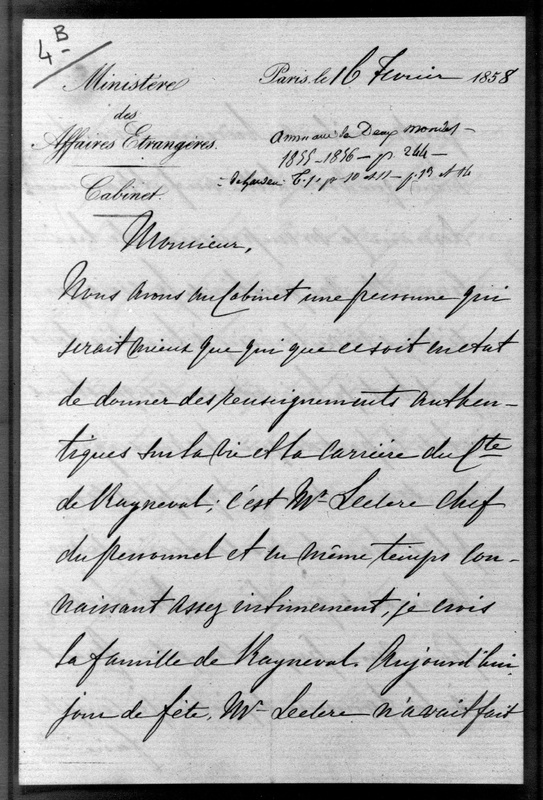 4 B
Ministère
des
Affaires Etrangères.
Cabinet.
Paris, le 16 Fevrier 1858
Annuaire des Deux mondes -
1855-1856 - p. 244 -
T. 1. p. 10 et 11 - p. 13 et 14
Monsieur,
Nous avons au Cabinet une personne qui
serait mieux que qui que ce soit en état
de donner des renseignements authen-
tiques sur la vie et la carrière du Cte
de Rayneval; c'est Mr. Leclerc chef
du personnel et en même temps con-
naissant assez intimement, je crois
la famille de Rayneval. Aujourd'hui,
jour de fête, Mr. Leclerc n'avait fait